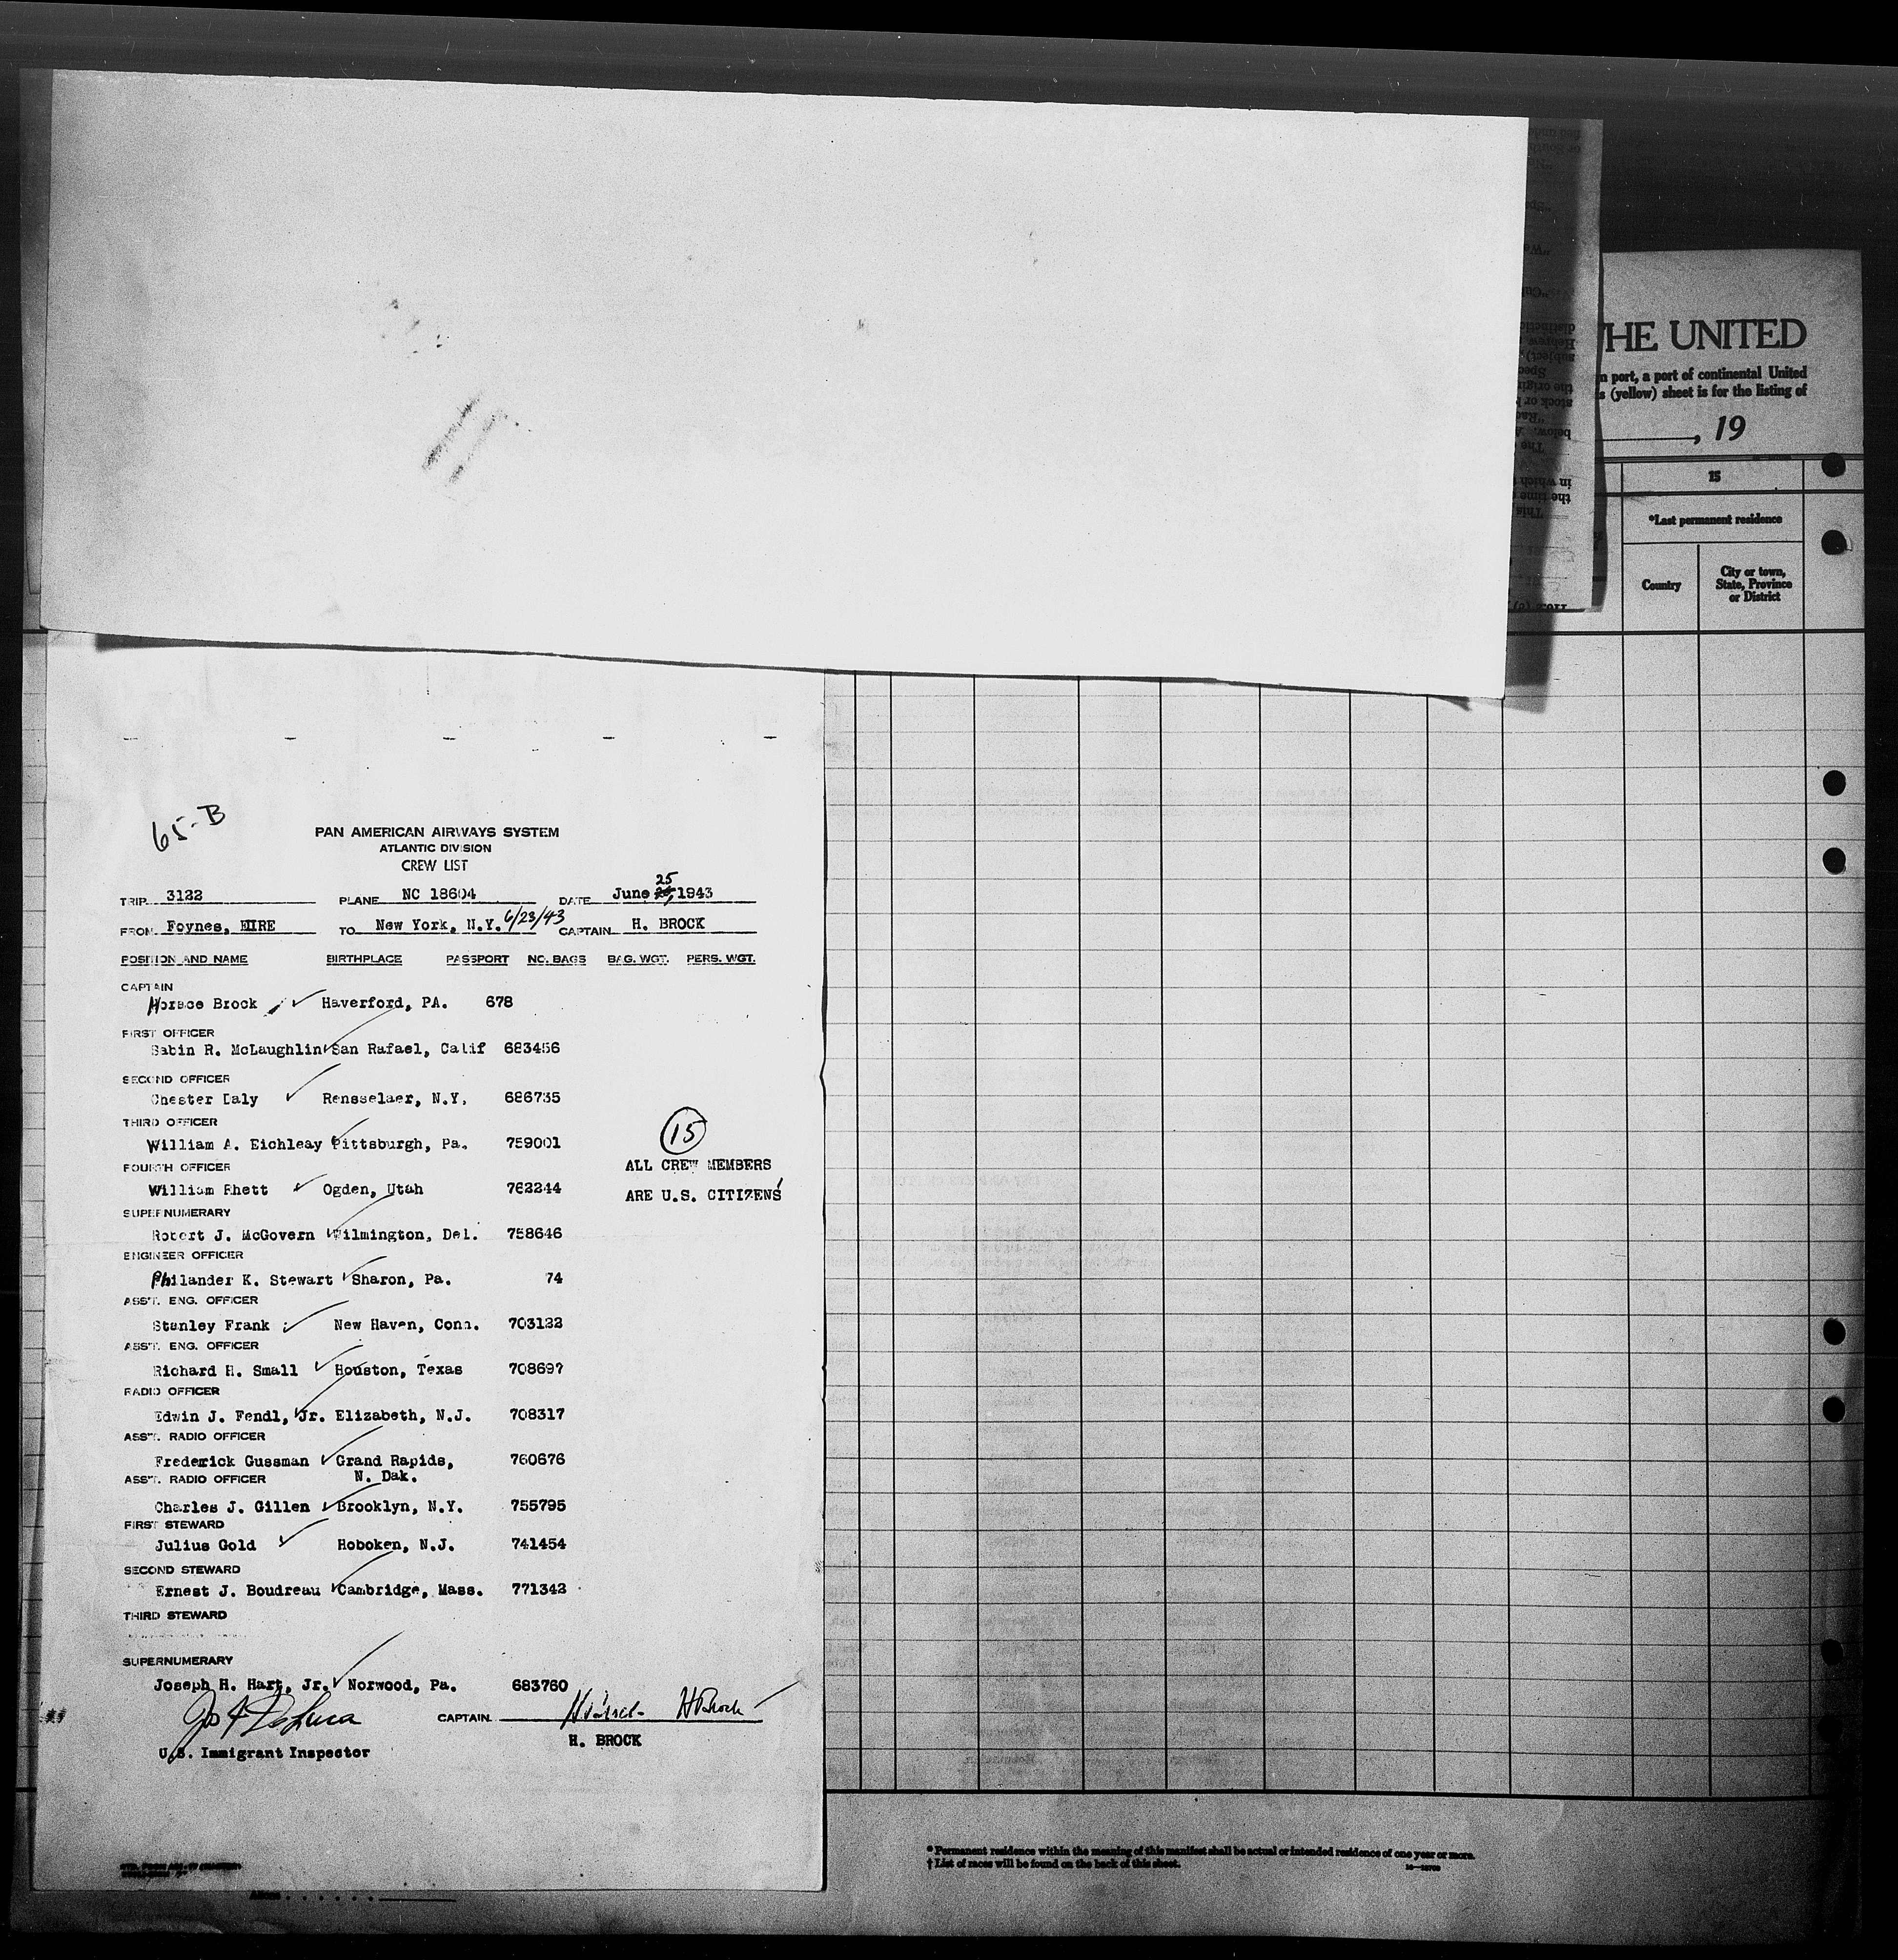 THE UNITED
n port, a port of continental United
s (yellow) sheet is for the listing of
, 19
15
*Last permanent residence
Country
City or town,
State, Province
or District
65-B
PAN AMERICAN AIRWAYS SYSTEM
ATLANTIC DIVISION
CREW LIST
TRIP 3122 PLANE NC 18604 DATE June 25, 1943
FROM Foynes, EIRE TO New York, N.Y. 6/23/43 CAPTAIN H. BROCK
POSITION AND NAME BIRTHPLACE PASSPORT NO. BAGS BAG. WGT. PERS. WGT.
CAPTAIN
Horace Brock Haverford, PA. 678
FIRST OFFICER
Sabin R. McLaughlin San Rafael, Calif 683456
SECOND OFFICER
Chester Daly Rensselaer, N.Y. 686735
THIRD OFFICER
William A. Eichleay Pittsburgh, Pa. 759001
15
FOURTH OFFICER
ALL CREW MEMBERS
William Rhett Ogden, Utah 762244
ARE U.S. CITIZENS
SUPERNUMERARY
Robert J. McGovern Wilmington, Del. 758646
ENGINEER OFFICER
Philander K. Stewart Sharon, Pa. 74
ASS'T. ENG. OFFICER
Stanley Frank New Haven, Conn. 703122
ASS'T. ENG. OFFICER
Richard H. Small Houston, Texas 708697
RADIO OFFICER
Edwin J. Fendl, Jr. Elizabeth, N.J. 708317
ASS'T. RADIO OFFICER
Frederick Gussman Grand Rapids, 760676
ASS'T. RADIO OFFICER N. Dak.
Charles J. Gillen Brooklyn, N.Y. 755795
FIRST STEWARD
Julius Gold Hoboken, N.J. 741454
SECOND STEWARD
Ernest J. Boudreau Cambridge, Mass. 771342
THIRD STEWARD
SUPERNUMERARY
Joseph H. Hart, Jr. Norwood, Pa. 683760
Jos F DeLuca CAPTAIN H Brock HBrock
H. BROCK
U.S. Immigrant Inspector
* Permanent residence within the meaning of this manifest shall be actual or intended residence of one year or more.
† List of races will be found on the back of this sheet.